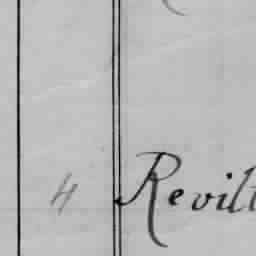 4 Revilt